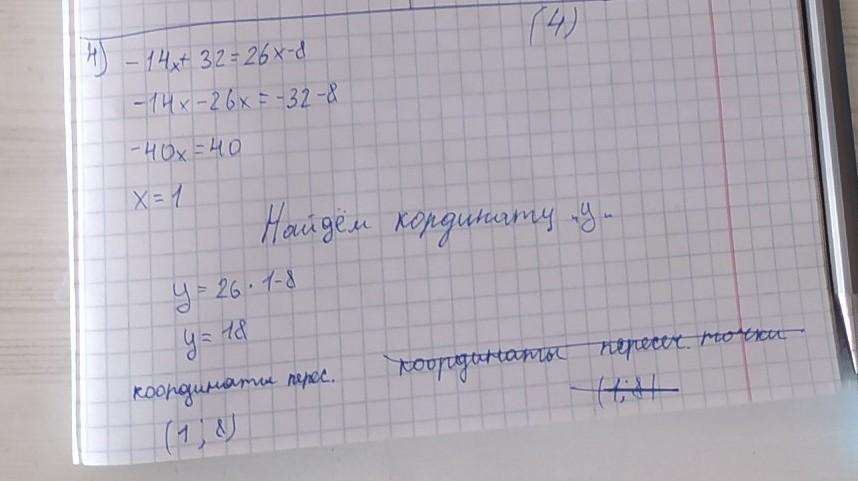 (4)
4) -14x+32=26x-8
-14x-26x=-32-8
-40x=40
x=1
Найдём кординату „y"
y=26·1-8
y=18
координаты перес. координаты пересеч. точки
(1;8)
(1;8)